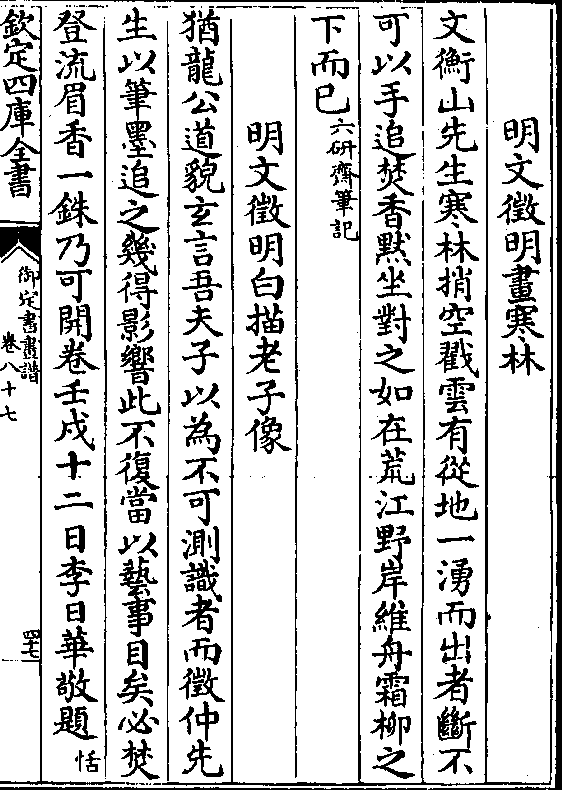 明文徵明畫寒林
文衡山先生寒林捎空戳雲有從地一湧而出者斷不
可以手追焚香默坐對之如在荒江野岸維舟霜柳之
下而已六研齋筆記
明文徵明白描老子像
猶龍公道貌玄言吾夫子以為不可測識者而徵仲先
生以筆墨追之幾得影響此不復當以藝事目矣必焚
登流眉香一銖乃可開卷壬戌十二日李日華敬題恬
欽定四庫全書
御定書畫譜
卷八十七
四七